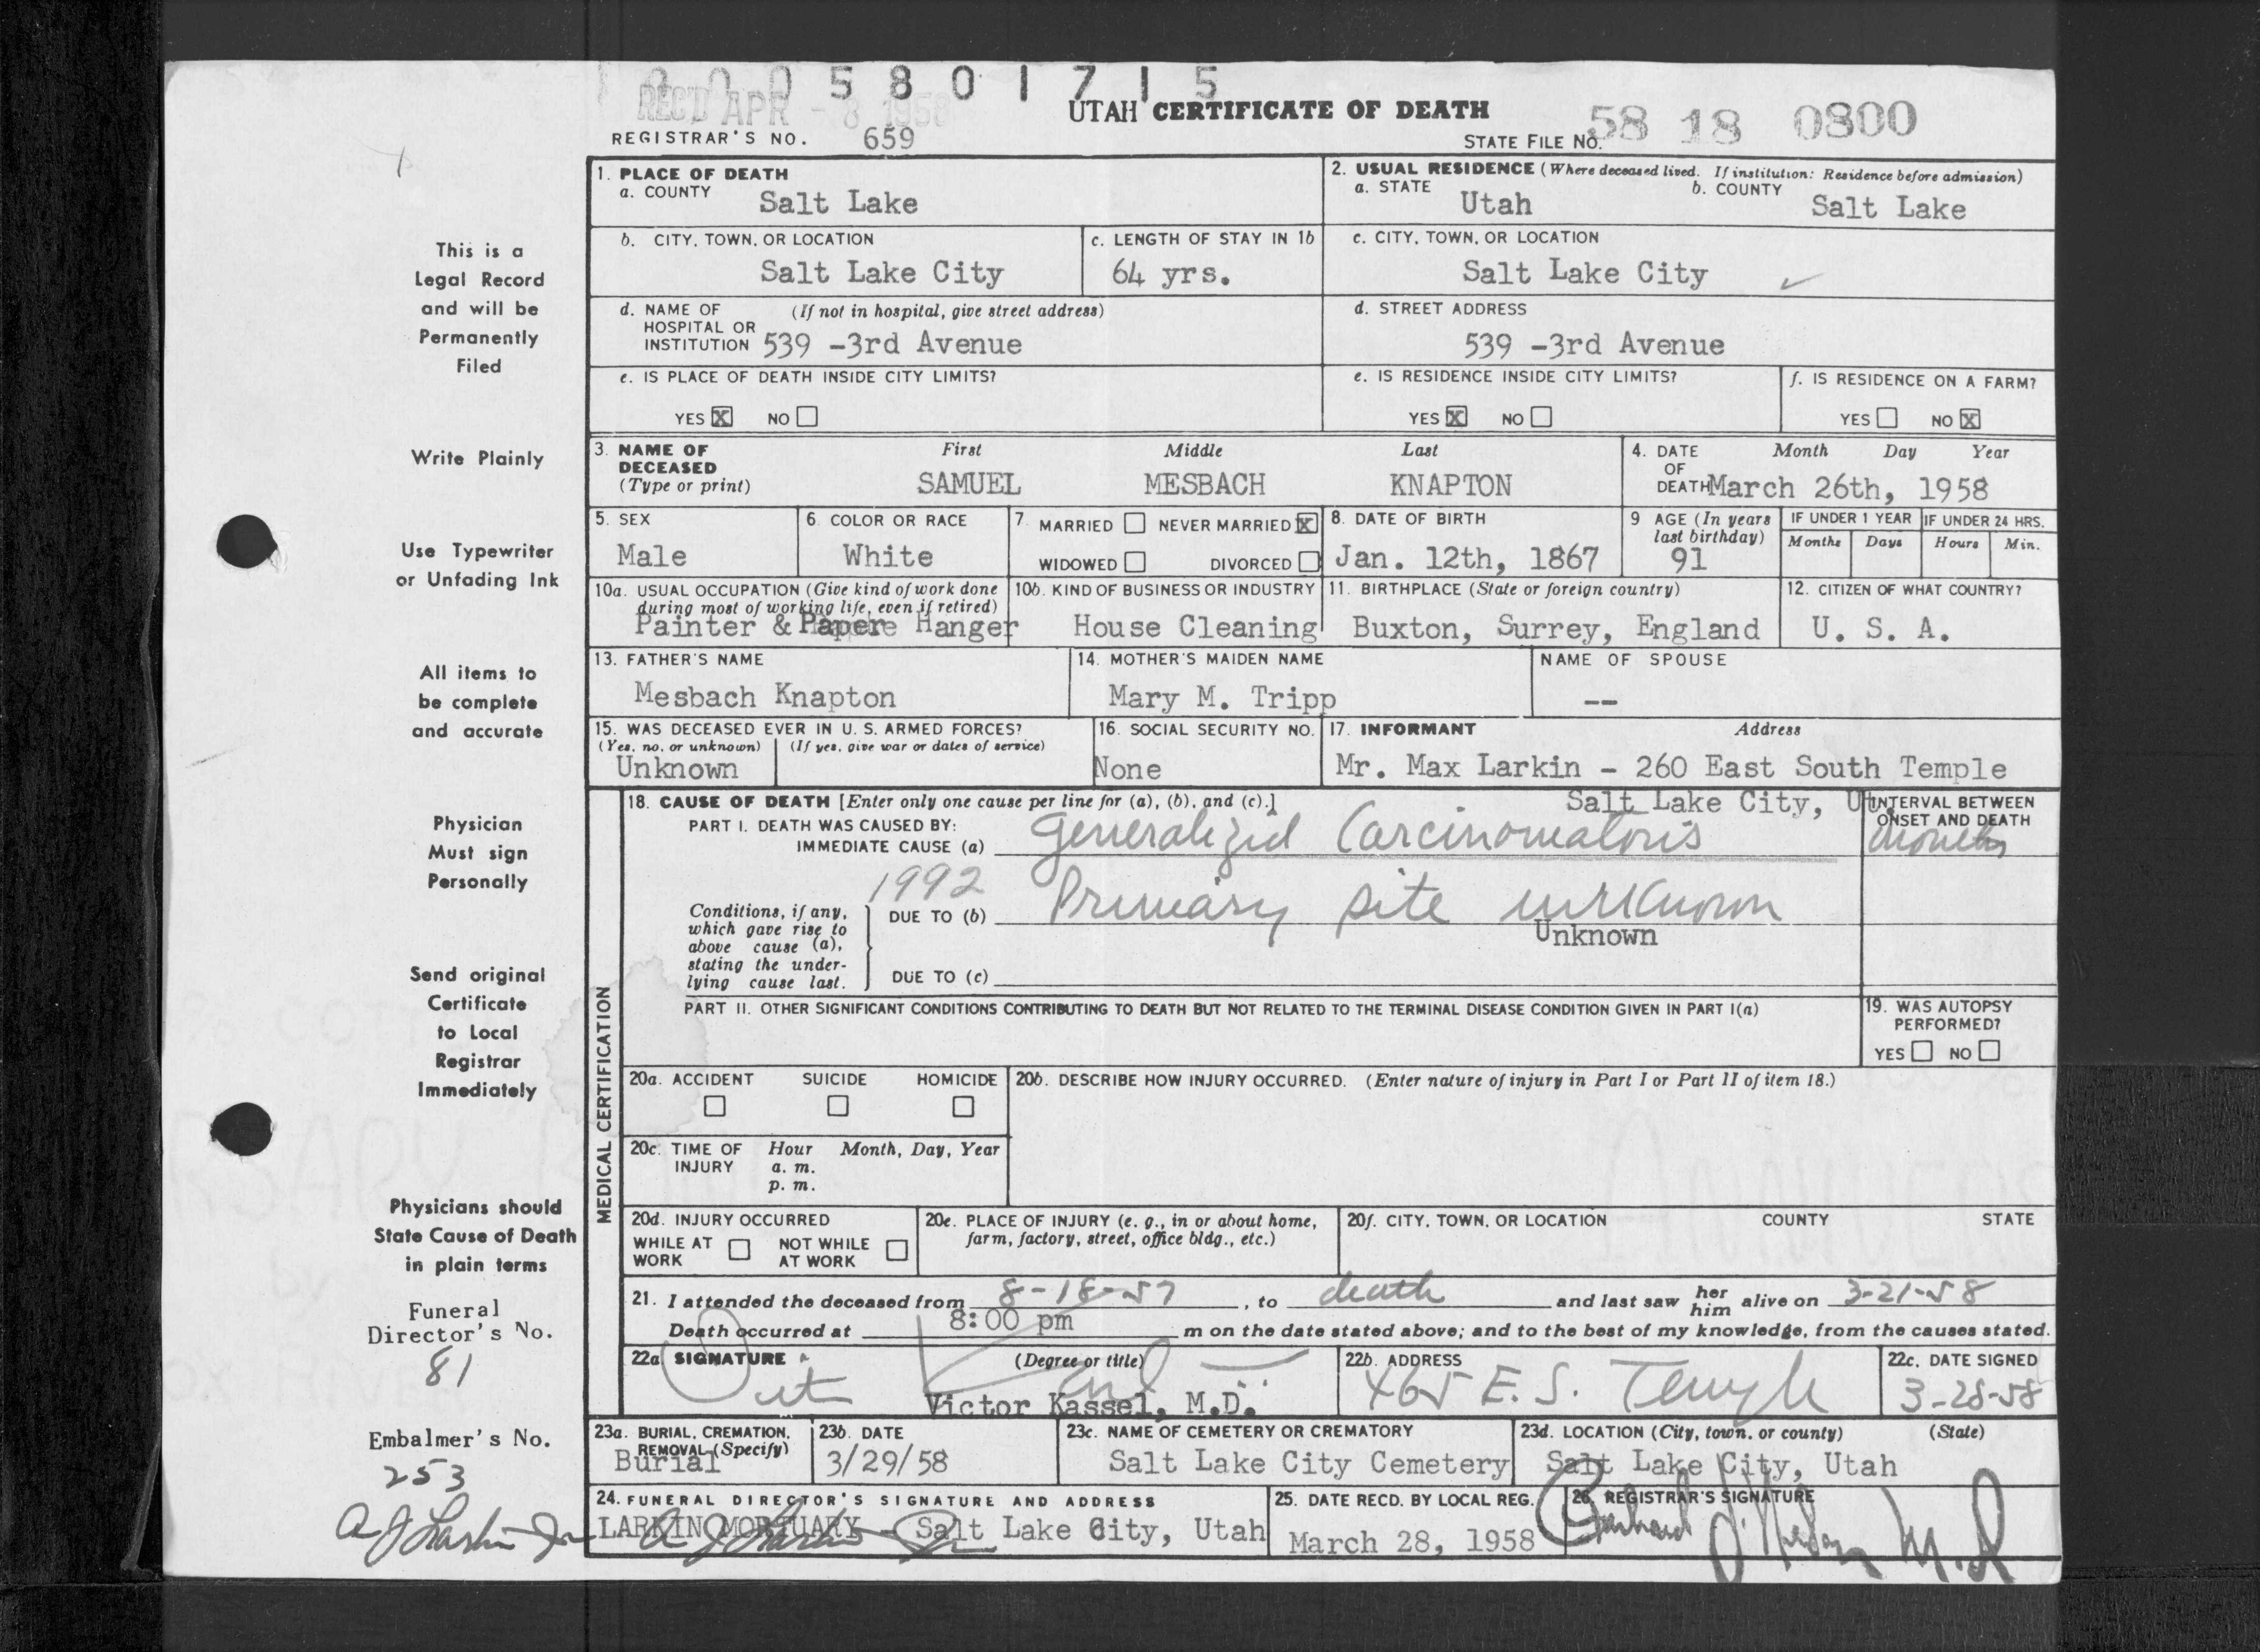 0 0 0 5 8 0 1 7 1 5
REC'D APR - 8 1958
UTAH CERTIFICATE OF DEATH
REGISTRAR'S NO. 659
STATE FILE NO. 58 18 0800
This is a
Legal Record
and will be
Permanently
Filed
Write Plainly
Use Typewriter
or Unfading Ink
All items to
be complete
and accurate
Physician
Must sign
Personally
Send original
Certificate
to Local
Registrar
Immediately
Physicians should
State Cause of Death
in plain terms
Funeral
Director's No.
81
Embalmer's No.
253
A J Larkin Jr
1. PLACE OF DEATH
a. COUNTY Salt Lake
2. USUAL RESIDENCE (Where deceased lived. If institution: Residence before admission)
a. STATE Utah b. COUNTY Salt Lake
b. CITY, TOWN, OR LOCATION
Salt Lake City
c. LENGTH OF STAY IN 1b
64 yrs.
c. CITY, TOWN, OR LOCATION
Salt Lake City
d. NAME OF (If not in hospital, give street address)
HOSPITAL OR
INSTITUTION 539 -3rd Avenue
d. STREET ADDRESS
539 -3rd Avenue
e. IS PLACE OF DEATH INSIDE CITY LIMITS?
YES X NO
e. IS RESIDENCE INSIDE CITY LIMITS?
YES X NO
f. IS RESIDENCE ON A FARM?
YES NO X
3. NAME OF First Middle Last
DECEASED
(Type or print) SAMUEL MESBACH KNAPTON
4. DATE Month Day Year
OF
DEATH March 26th, 1958
5. SEX
Male
6. COLOR OR RACE
White
7. MARRIED NEVER MARRIED X
WIDOWED DIVORCED
8. DATE OF BIRTH
Jan. 12th, 1867
9 AGE (In years
last birthday)
91
IF UNDER 1 YEAR IF UNDER 24 HRS.
Months Days Hours Min.
10a. USUAL OCCUPATION (Give kind of work done
during most of working life, even if retired)
Painter & Paper Hanger
10b. KIND OF BUSINESS OR INDUSTRY
House Cleaning
11. BIRTHPLACE (State or foreign country)
Buxton, Surrey, England
12. CITIZEN OF WHAT COUNTRY?
U. S. A.
13. FATHER'S NAME
Mesbach Knapton
14. MOTHER'S MAIDEN NAME
Mary M. Tripp
NAME OF SPOUSE
--
15. WAS DECEASED EVER IN U. S. ARMED FORCES?
(Yes, no, or unknown) (If yes, give war or dates of service)
Unknown
16. SOCIAL SECURITY NO.
None
17. INFORMANT Address
Mr. Max Larkin - 260 East South Temple
Salt Lake City, Ut.
MEDICAL CERTIFICATION
18. CAUSE OF DEATH [Enter only one cause per line for (a), (b), and (c).]
INTERVAL BETWEEN
ONSET AND DEATH
PART I. DEATH WAS CAUSED BY:
IMMEDIATE CAUSE (a) Generalized Carcinomatosis months
1992
Conditions, if any,
which gave rise to
above cause (a),
stating the under-
lying cause last.
DUE TO (b) Primary site unknown
Unknown
DUE TO (c)
PART II. OTHER SIGNIFICANT CONDITIONS CONTRIBUTING TO DEATH BUT NOT RELATED TO THE TERMINAL DISEASE CONDITION GIVEN IN PART I(a)
19. WAS AUTOPSY
PERFORMED?
YES NO
20a. ACCIDENT SUICIDE HOMICIDE
20b. DESCRIBE HOW INJURY OCCURRED. (Enter nature of injury in Part I or Part II of item 18.)
20c. TIME OF Hour Month, Day, Year
INJURY a. m.
p. m.
20d. INJURY OCCURRED
WHILE AT NOT WHILE
WORK AT WORK
20e. PLACE OF INJURY (e. g., in or about home,
farm, factory, street, office bldg., etc.)
20f. CITY, TOWN, OR LOCATION COUNTY STATE
21. I attended the deceased from 8-18-57, to death and last saw her him alive on 3-21-58
Death occurred at 8:00 pm m on the date stated above; and to the best of my knowledge, from the causes stated.
22a SIGNATURE (Degree or title)
Victor Kassel, M.D.
22b. ADDRESS
465 E. S. Temple
22c. DATE SIGNED
3-28-58
23a. BURIAL, CREMATION,
REMOVAL (Specify)
Burial
23b. DATE
3/29/58
23c. NAME OF CEMETERY OR CREMATORY
Salt Lake City Cemetery
23d. LOCATION (City, town, or county) (State)
Salt Lake City, Utah
24. FUNERAL DIRECTOR'S SIGNATURE AND ADDRESS
LARKIN MORTUARY - Salt Lake City, Utah
A J Larkin Jr
25. DATE RECD. BY LOCAL REG.
March 28, 1958
26. REGISTRAR'S SIGNATURE
M.D.